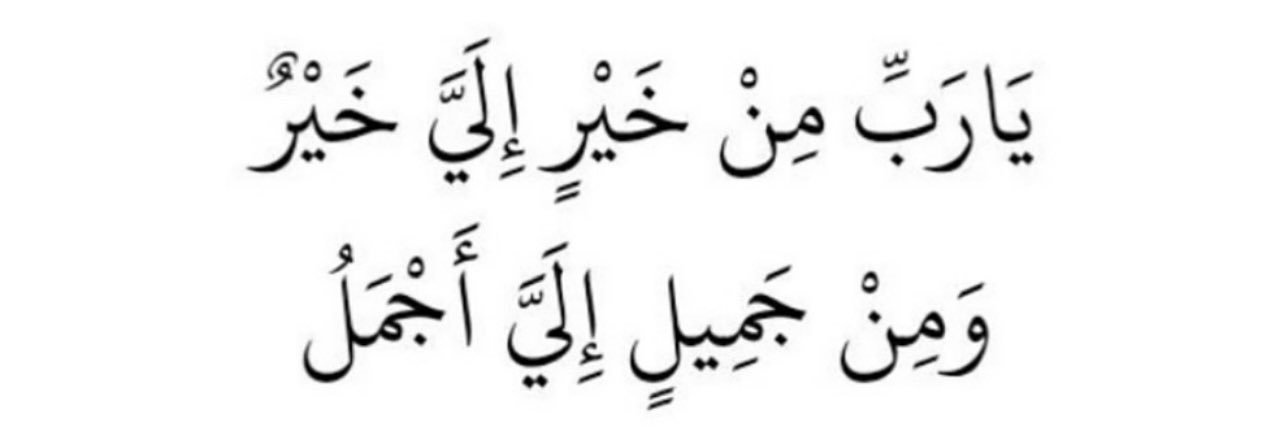 يَارَبِّ مِنْ خَيْرٍ إِلَيَّ خَيْرٌ
وَمِنْ جَمِيلٍ إِلَيَّ أَجْمَلُ